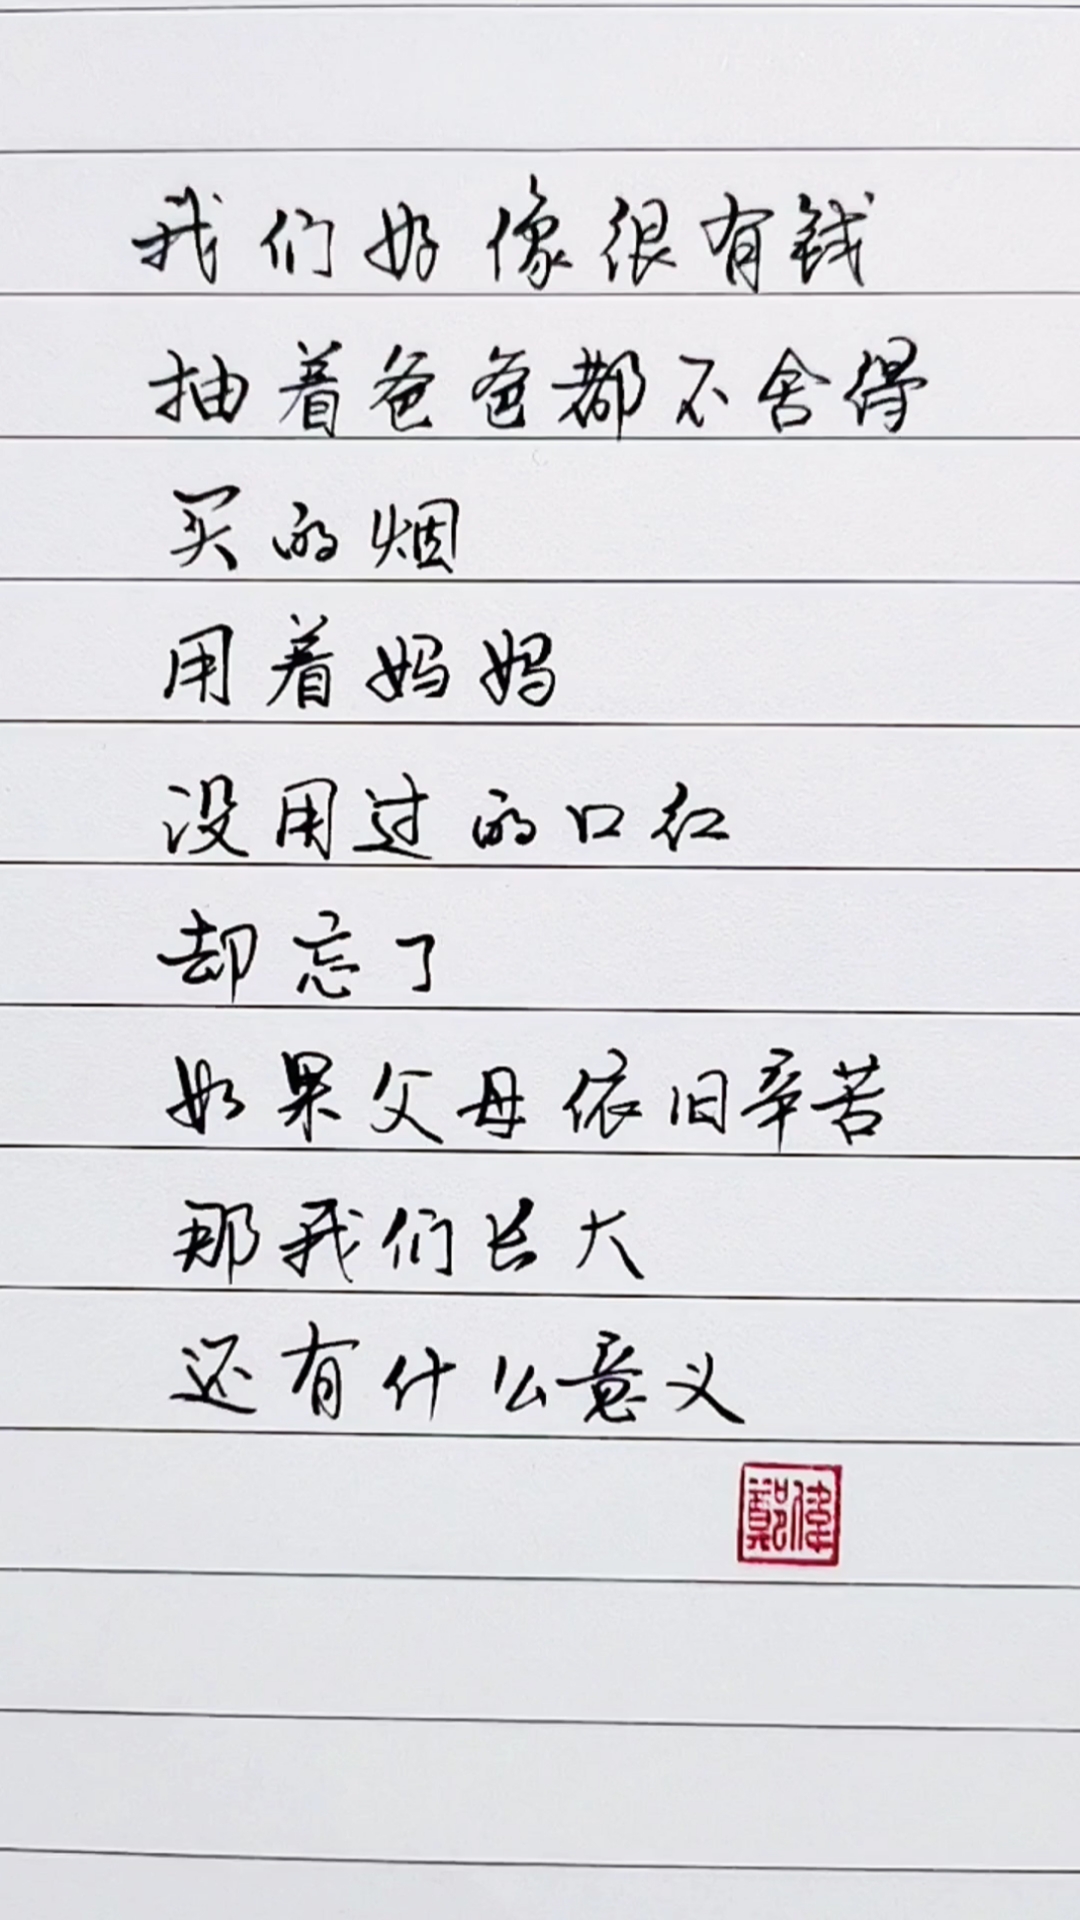 我们好像很有钱
抽着爸爸都不舍得
买的烟
用着妈妈
没用过的口红
却忘了
如果父母依旧辛苦
那我们长大
还有什么意义
鄭偉